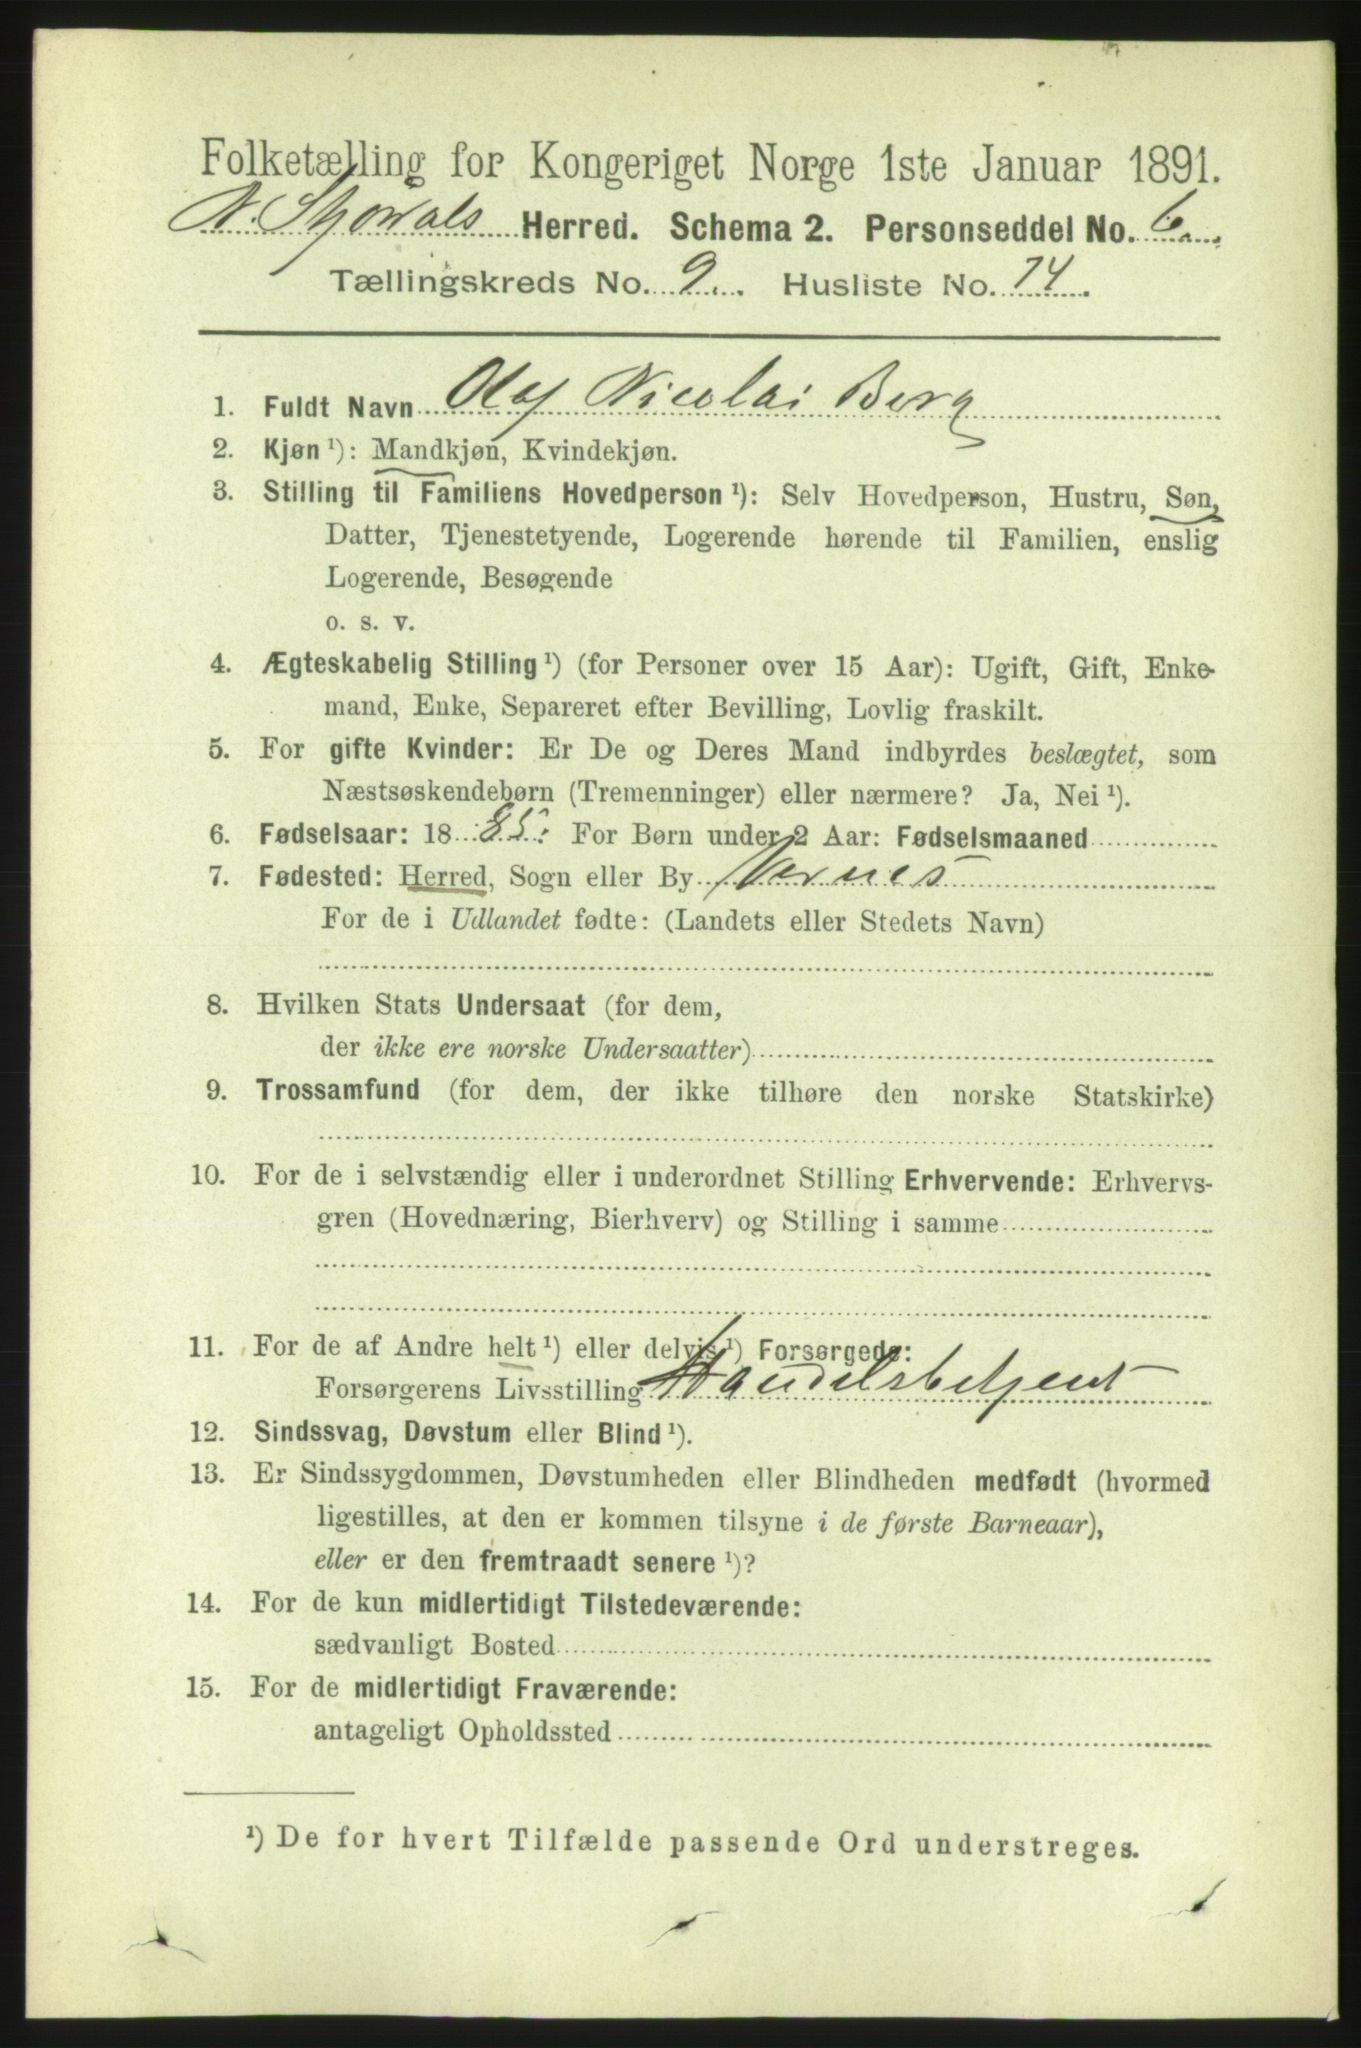 Folketælling for Kongeriget Norge 1ste Januar 1891.
N. Stjørdals Herred. Schema 2. Personseddel No. 6
Tællingskreds No. 9. Husliste No. 74.
1. Fuldt Navn Olaf Nicolai Berg
2. Kjøn ¹): Mandkjøn, Kvindekjøn.
3. Stilling til Familiens Hovedperson ¹): Selv Hovedperson, Hustru, Søn,
Datter, Tjenestetyende, Logerende hørende til Familien, enslig
Logerende, Besøgende
o. s. v.
4. Ægteskabelig Stilling ¹) (for Personer over 15 Aar): Ugift, Gift, Enke-
mand, Enke, Separeret efter Bevilling, Lovlig fraskilt.
5. For gifte Kvinder: Er De og Deres Mand indbyrdes beslægtet, som
Næstsøskendebørn (Tremenninger) eller nærmere? Ja, Nei ¹).
6. Fødselsaar: 1885. For Børn under 2 Aar: Fødselsmaaned
7. Fødested: Herred, Sogn eller By Vernes
For de i Udlandet fødte: (Landets eller Stedets Navn)
8. Hvilken Stats Undersaat (for dem,
der ikke ere norske Undersaatter)
9. Trossamfund (for dem, der ikke tilhøre den norske Statskirke)
10. For de i selvstændig eller i underordnet Stilling Erhvervende: Erhvervs-
gren (Hovednæring, Bierhverv) og Stilling i samme
11. For de af Andre helt ¹) eller delvis ¹) Forsørgede:
Forsørgerens Livsstilling Handelsbetjent
12. Sindssvag, Døvstum eller Blind ¹).
13. Er Sindssygdommen, Døvstumheden eller Blindheden medfødt (hvormed
ligestilles, at den er kommen tilsyne i de første Barneaar),
eller er den fremtraadt senere ¹)?
14. For de kun midlertidigt Tilstedeværende:
sædvanligt Bosted
15. For de midlertidigt Fraværende:
antageligt Opholdssted
¹) De for hvert Tilfælde passende Ord understreges.